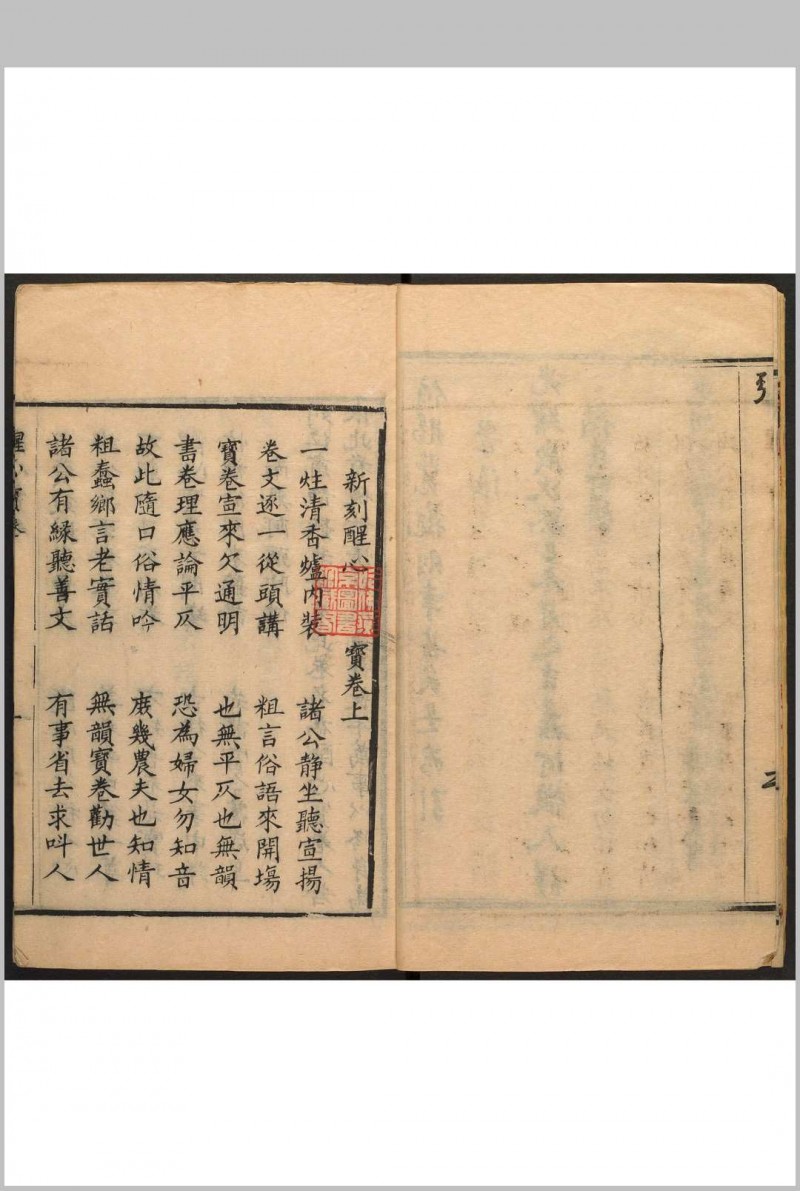 引
二
新刻醒心寶卷上
一炷清香爐內裝　諸公靜坐聽宣揚
卷文逐一從頭講　粗言俗語來開塲
寶卷宣來欠通明　也無平仄也無韻
書卷理應論平仄　恐為婦女勿知音
故此隨口俗情吟　庻幾農夫也知情
粗蠢鄉言老實話　無韻寶卷勸世人
諸公有緣聽善文　有事省去求呌人
醒心寶卷
一